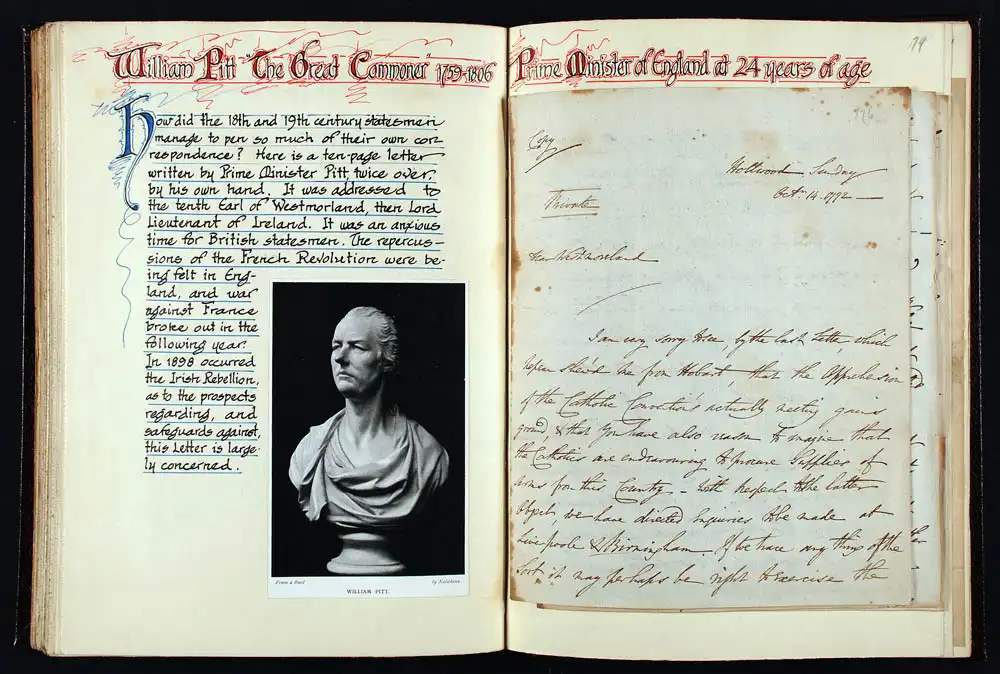 William Pitt "The Great Commoner" 1759-1806
How did the 18th and 19th century statesmen
manage to pen so much of their own cor-
respondence? Here is a ten-page letter
written by Prime Minister Pitt, twice over,
by his own hand. It was addressed to
the tenth Earl of Westmorland, then Lord
Lieutenant of Ireland. It was an anxious
time for British statesmen. The repercus-
sions of the French Revolution were be-
ing felt in Eng-
land, and war
against France
broke out in the
following year.
In 1898 occurred
the Irish Rebellion,
as to the prospects
regarding, and
safeguards against,
this Letter is large-
ly concerned.
From a Bust by Nollekens
WILLIAM PITT.
Prime Minister of England at 24 years of age
Copy
Hollwood Sunday
Octr. 14. 1792
Private
Dear Westmoreland
I am very sorry to see, by the last Letter, which
has been shew'd me from Hobart, that the Apprehension
of the Catholic Convention's actually meeting gains
ground, & that You have also reason to imagine that
the Catholics are endeavouring to procure Supplies of
Arms from this Country - With Respect to the latter
Object, we have directed Enquiries to be made at
Liverpoole & Birmingham. If we trace any thing of the
Sort it may perhaps be right to exercise the